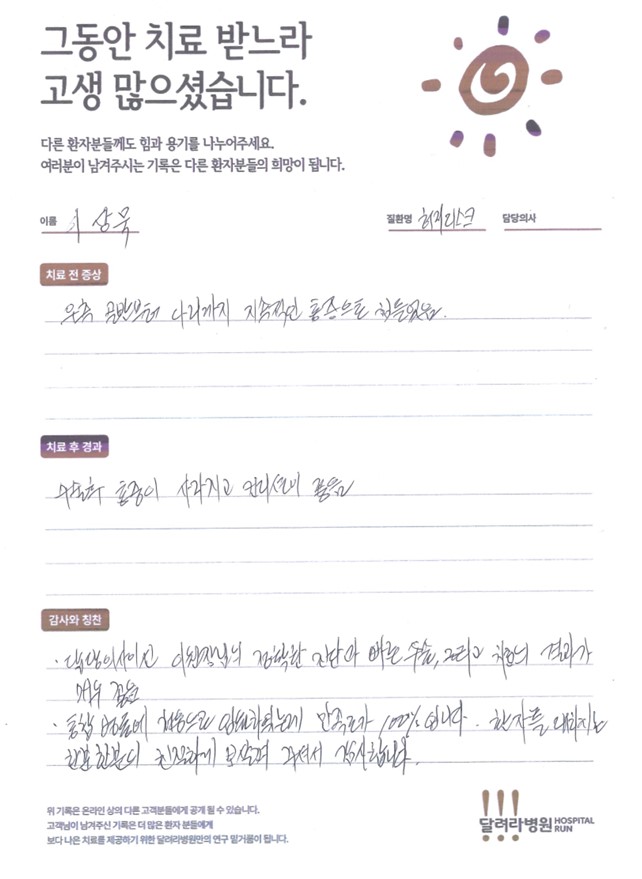 그동안 치료 받느라
고생 많으셨습니다.
다른 환자분들께도 힘과 용기를 나누어주세요.
여러분이 남겨주시는 기록은 다른 환자분들의 희망이 됩니다.
이름 상욱 질환명 허리디스크 담당의사
치료 전 증상
우측 골반부터 다리까지 지속적인 통증으로 힘들었음.
치료 후 경과
수술후 통증이 사라지고 컨디션이 좋음
감사와 칭찬
· 담당의사이신 이원장님의 정확한 진단과 빠른 수술, 그리고 치료의 결과가
매우 좋음
· 통합 병동에 처음으로 입원하였는데 만족도가 100% 입니다. 환자를 대하시는
한분 한분이 친절하게 보살펴 주셔서 감사합니다.
위 기록은 온라인 상의 다른 고객분들에게 공개 될 수 있습니다.
고객님이 남겨주신 기록은 더 많은 환자 분들에게
보다 나은 치료를 제공하기 위한 달려라병원만의 연구 밑거름이 됩니다.
달려라병원 HOSPITAL RUN